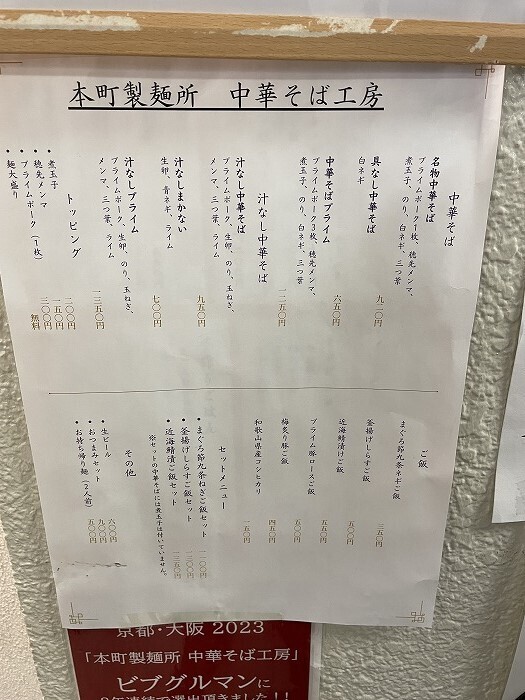 本町製麺所　中華そば工房
中華そば
名物中華そば
プライムポーク1枚、穂先メンマ、
煮玉子、のり、白ネギ、三つ葉
九二〇円
具なし中華そば
白ネギ
六五〇円
中華そばプライム
プライムポーク3枚、穂先メンマ、
煮玉子、のり、白ネギ、三つ葉
一二五〇円
汁なし中華そば
汁なし中華そば
プライムポーク、生卵、のり、玉ねぎ、
メンマ、三つ葉、ライム
九五〇円
汁なしまかない
生卵、青ネギ、ライム
七〇〇円
汁なしプライム
プライムポーク、生卵、のり、玉ねぎ、
メンマ、三つ葉、ライム
一三五〇円
トッピング
・煮玉子 二〇〇円
・穂先メンマ 一五〇円
・プライムポーク（1枚） 三〇〇円
・麺大盛り 無料
ご飯
まぐろ節九条ネギご飯
三五〇円
釜揚げしらすご飯
五〇〇円
近海鯖漬けご飯
五〇〇円
プライム豚ロースご飯
五〇〇円
梅炙り豚ご飯
四五〇円
和歌山県産コシヒカリ
一五〇円
セットメニュー
・まぐろ節九条ねぎご飯セット 一一〇〇円
・釜揚げしらすご飯セット 一二〇〇円
・近海鯖漬ご飯セット 一二五〇円
※セットの中華そばには煮玉子は付いていません。
その他
・生ビール 六〇〇円
・おつまみセット 九〇〇円
・お持ち帰り麺（2人前） 五〇〇円
京都・大阪 2023
「本町製麺所 中華そば工房」
ビブグルマンに
年連続で選出頂きました！！